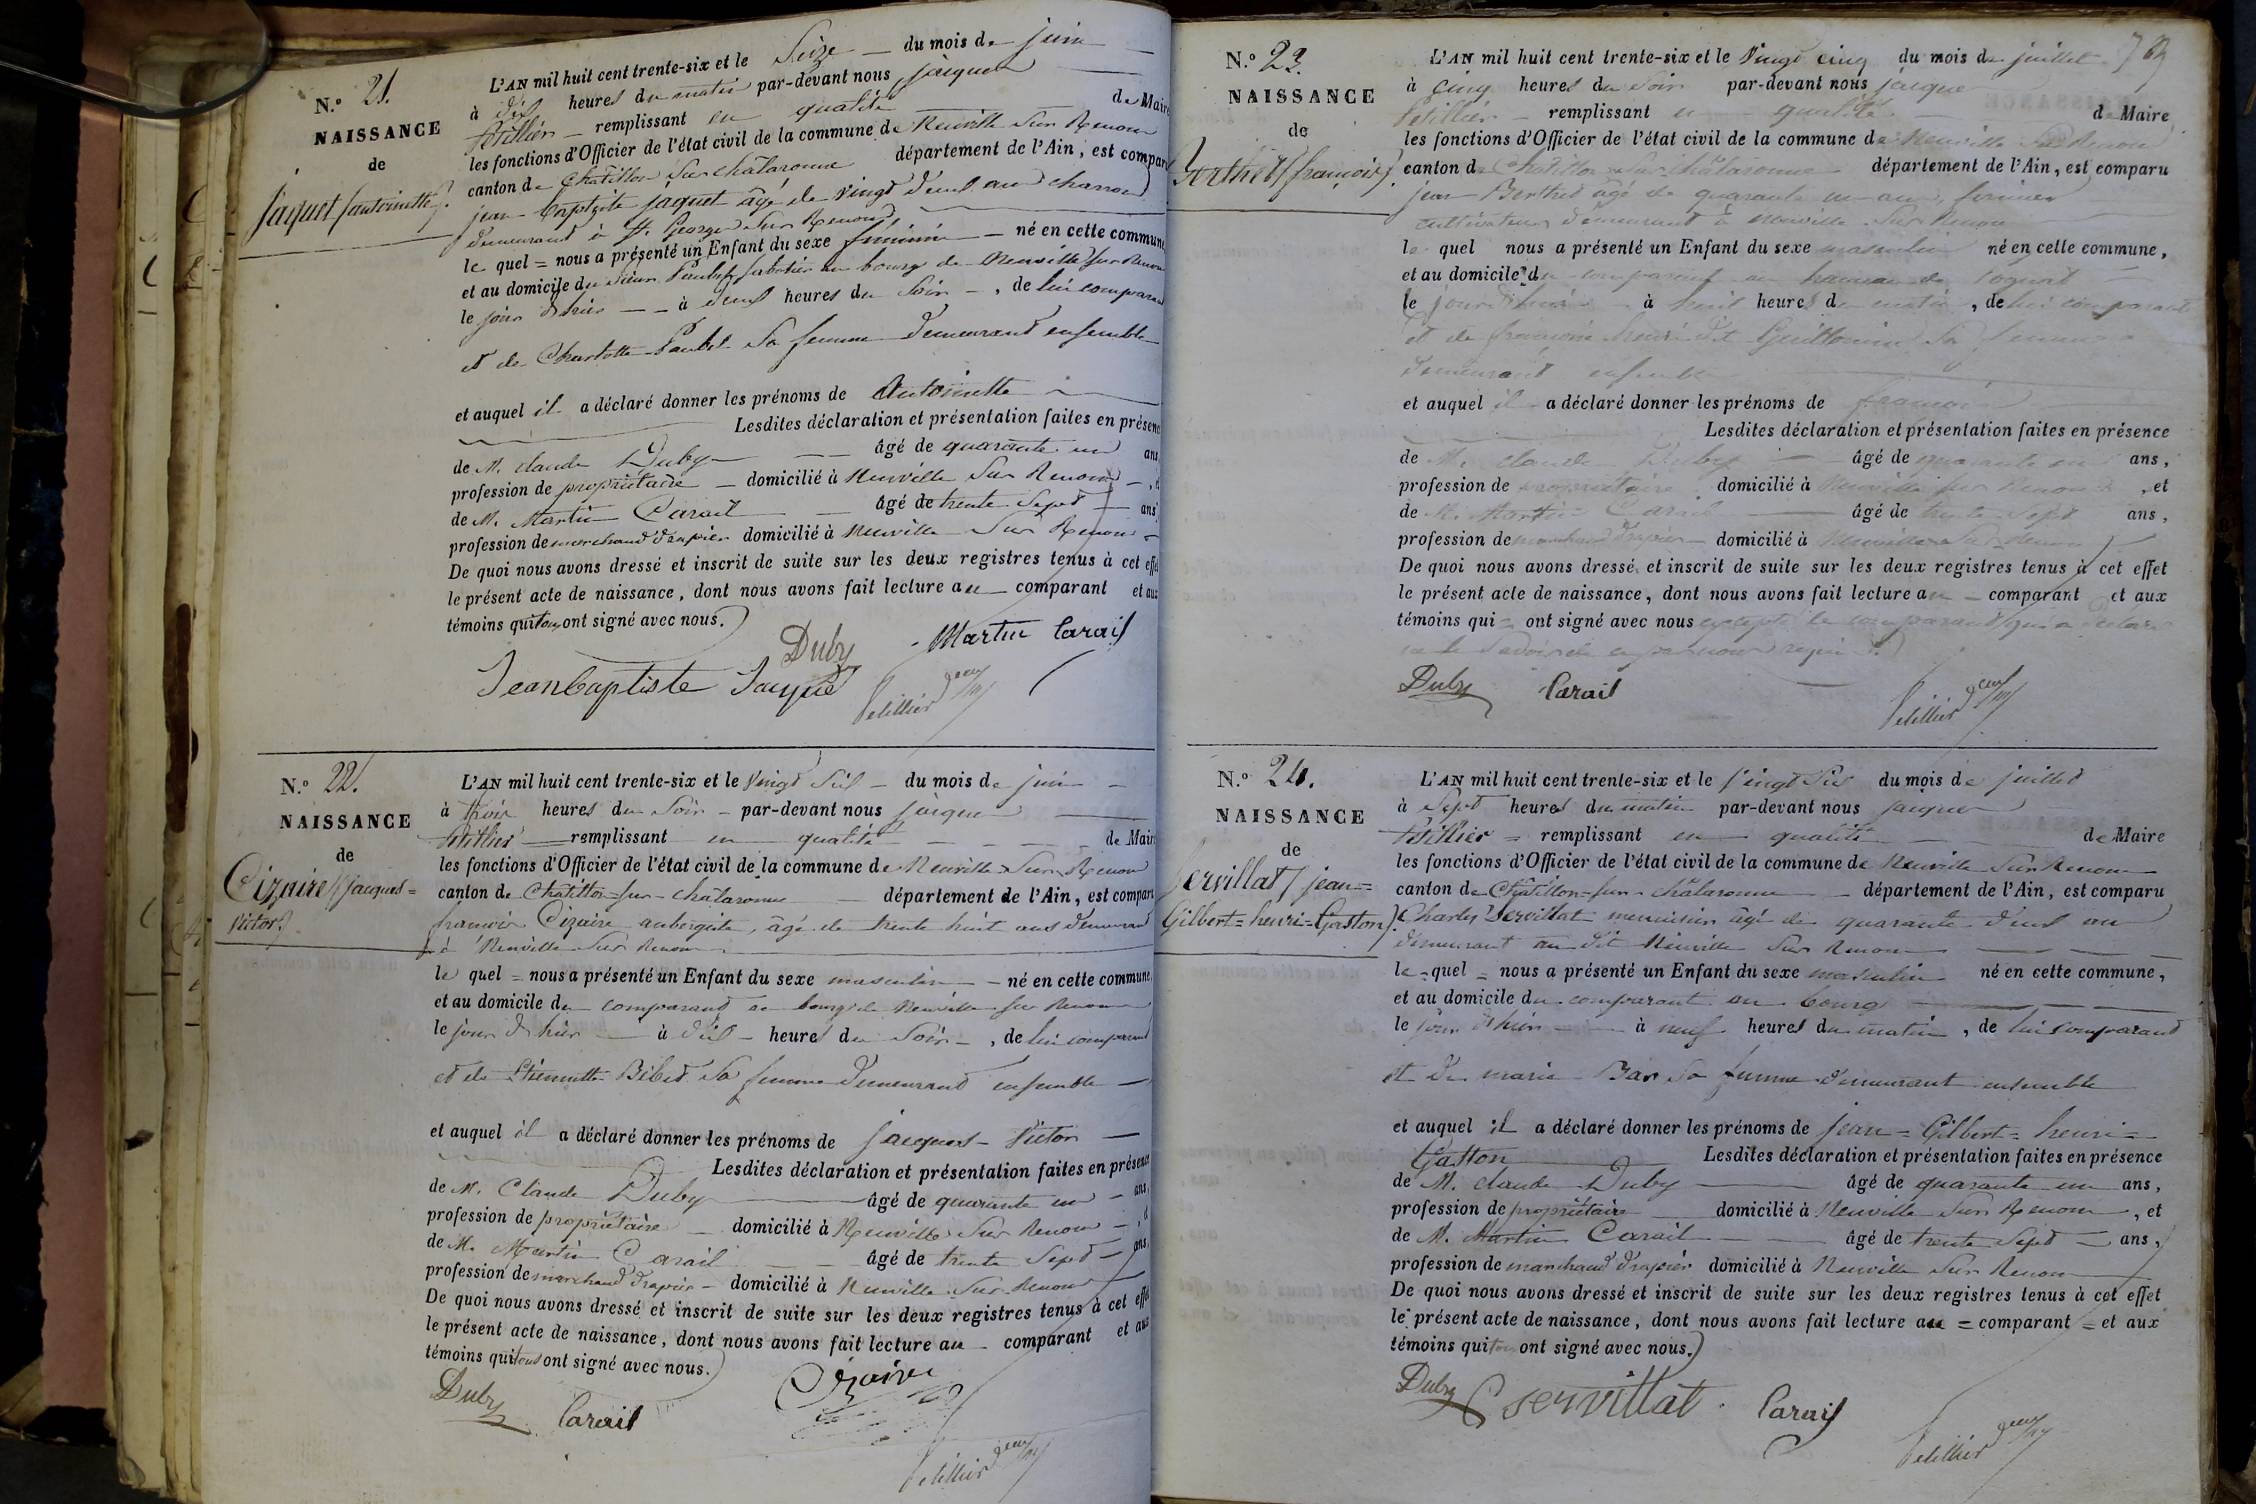 N.º 21.
NAISSANCE
de
Jaquet (antoinette).
L'AN mil huit cent trente-six et le Seize du mois de juin
à dix heures du matin par-devant nous jacques
Petillier remplissant en qualité de Maire
les fonctions d'Officier de l'état civil de la commune de Neuville sur Renom
canton de Chatillon sur chalaronne département de l'Ain, est comparu
jean baptiste jaquet âgé de vingt deux ans charron
demeurant à St. George sur Renom
le quel = nous a présenté un Enfant du sexe féminin né en cette commune,
et au domicile du sieur Paubel sabotier au bourg de Neuville sur Renom
le jour d'hier à deux heures du soir, de lui comparant
et de Charlotte Paubel sa femme demeurant ensemble
et auquel il a déclaré donner les prénoms de Antoinette
Lesdites déclaration et présentation faites en présence
de M. claude Duby âgé de quarante un ans,
profession de propriétaire domicilié à Neuville sur Renom
de M. Martin Carail âgé de trente sept ans,
profession de marchand drapier domicilié à Neuville sur Renom
De quoi nous avons dressé et inscrit de suite sur les deux registres tenus à cet effet
le présent acte de naissance, dont nous avons fait lecture au comparant et aux
témoins qui tous ont signé avec nous.
Duby Martin Carail
Jean baptiste Jaquet Petillier
N.º 22.
NAISSANCE
de
Cizaire (jacques=
Victor)
L'AN mil huit cent trente-six et le vingt six du mois de juin
à trois heures du soir par-devant nous jacques
Petillier remplissant en qualité de Maire
les fonctions d'Officier de l'état civil de la commune de Neuville sur Renom
canton de Chatillon-sur-chalaronne département de l'Ain, est comparu
françois Cizaire aubergiste, âgé de trente huit ans demeurant
à Neuville sur Renom
le quel = nous a présenté un Enfant du sexe masculin né en cette commune,
et au domicile du comparant au bourg de Neuville sur Renom
le jour d'hier à dix heures du soir, de lui comparant
et de Etiennette Bibet sa femme demeurant ensemble
et auquel il a déclaré donner les prénoms de jacques- Victor
Lesdites déclaration et présentation faites en présence
de M. Claude Duby âgé de quarante un ans,
profession de propriétaire domicilié à Neuville sur Renom
de M. Martin Carail âgé de trente sept ans,
profession de marchand drapier domicilié à Neuville sur Renom
De quoi nous avons dressé et inscrit de suite sur les deux registres tenus à cet effet
le présent acte de naissance, dont nous avons fait lecture au comparant et aux
témoins qui tous ont signé avec nous.
Duby Carail Cizaire
Petillier
N.º 23.
NAISSANCE
de
Berthet (françois).
L'AN mil huit cent trente-six et le vingt cinq du mois de juillet
à cinq heures du soir par-devant nous jacques
Petillier remplissant en qualité de Maire
les fonctions d'Officier de l'état civil de la commune de Neuville sur Renom
canton de Chatillon sur chalaronne département de l'Ain, est comparu
jean Berthet âgé de quarante un ans, fermier
cultivateur demeurant à Neuville sur Renom
le quel nous a présenté un Enfant du sexe masculin né en cette commune,
et au domicile du comparant au hameau de
le jour d'hier à huit heures du matin, de lui comparant
et de françoise dit Guillomin sa femme
demeurant ensemble
et auquel il a déclaré donner les prénoms de françois
Lesdites déclaration et présentation faites en présence
de M. claude Duby âgé de quarante un ans,
profession de propriétaire domicilié à Neuville sur Renom, et
de M. Martin Carail âgé de trente sept ans,
profession de marchand drapier domicilié à Neuville sur Renom
De quoi nous avons dressé et inscrit de suite sur les deux registres tenus à cet effet
le présent acte de naissance, dont nous avons fait lecture au comparant et aux
témoins qui ont signé avec nous excepté le comparant qui a déclaré
ne le savoir de ce par nous requis.
Duby Carail Petillier
N.º 24.
NAISSANCE
de
Servillat (jean=
Gilbert=henri=Gaston).
L'AN mil huit cent trente-six et le vingt six du mois de juillet
à sept heures du matin par-devant nous jacques
Petillier = remplissant en qualité de Maire
les fonctions d'Officier de l'état civil de la commune de Neuville sur Renom
canton de Châtillon=sur-chalaronne département de l'Ain, est comparu
Charles Servillat menuisier âgé de quarante deux ans
demeurant au dit Neuville sur Renom
le quel = nous a présenté un Enfant du sexe masculin né en cette commune,
et au domicile du comparant au bourg
le jour d'hier à neuf heures du matin, de lui comparant
et de marie Bar sa femme demeurant ensemble
et auquel il a déclaré donner les prénoms de jean=Gilbert=henri=
Gaston Lesdites déclaration et présentation faites en présence
de M. claude Duby âgé de quarante un ans,
profession de propriétaire domicilié à Neuville sur Renom, et
de M. Martin Carail âgé de trente sept ans,
profession de marchand drapier domicilié à Neuville sur Renom
De quoi nous avons dressé et inscrit de suite sur les deux registres tenus à cet effet
le présent acte de naissance, dont nous avons fait lecture au = comparant = et aux
témoins qui tous ont signé avec nous.
Duby C servillat Carail
Petillier